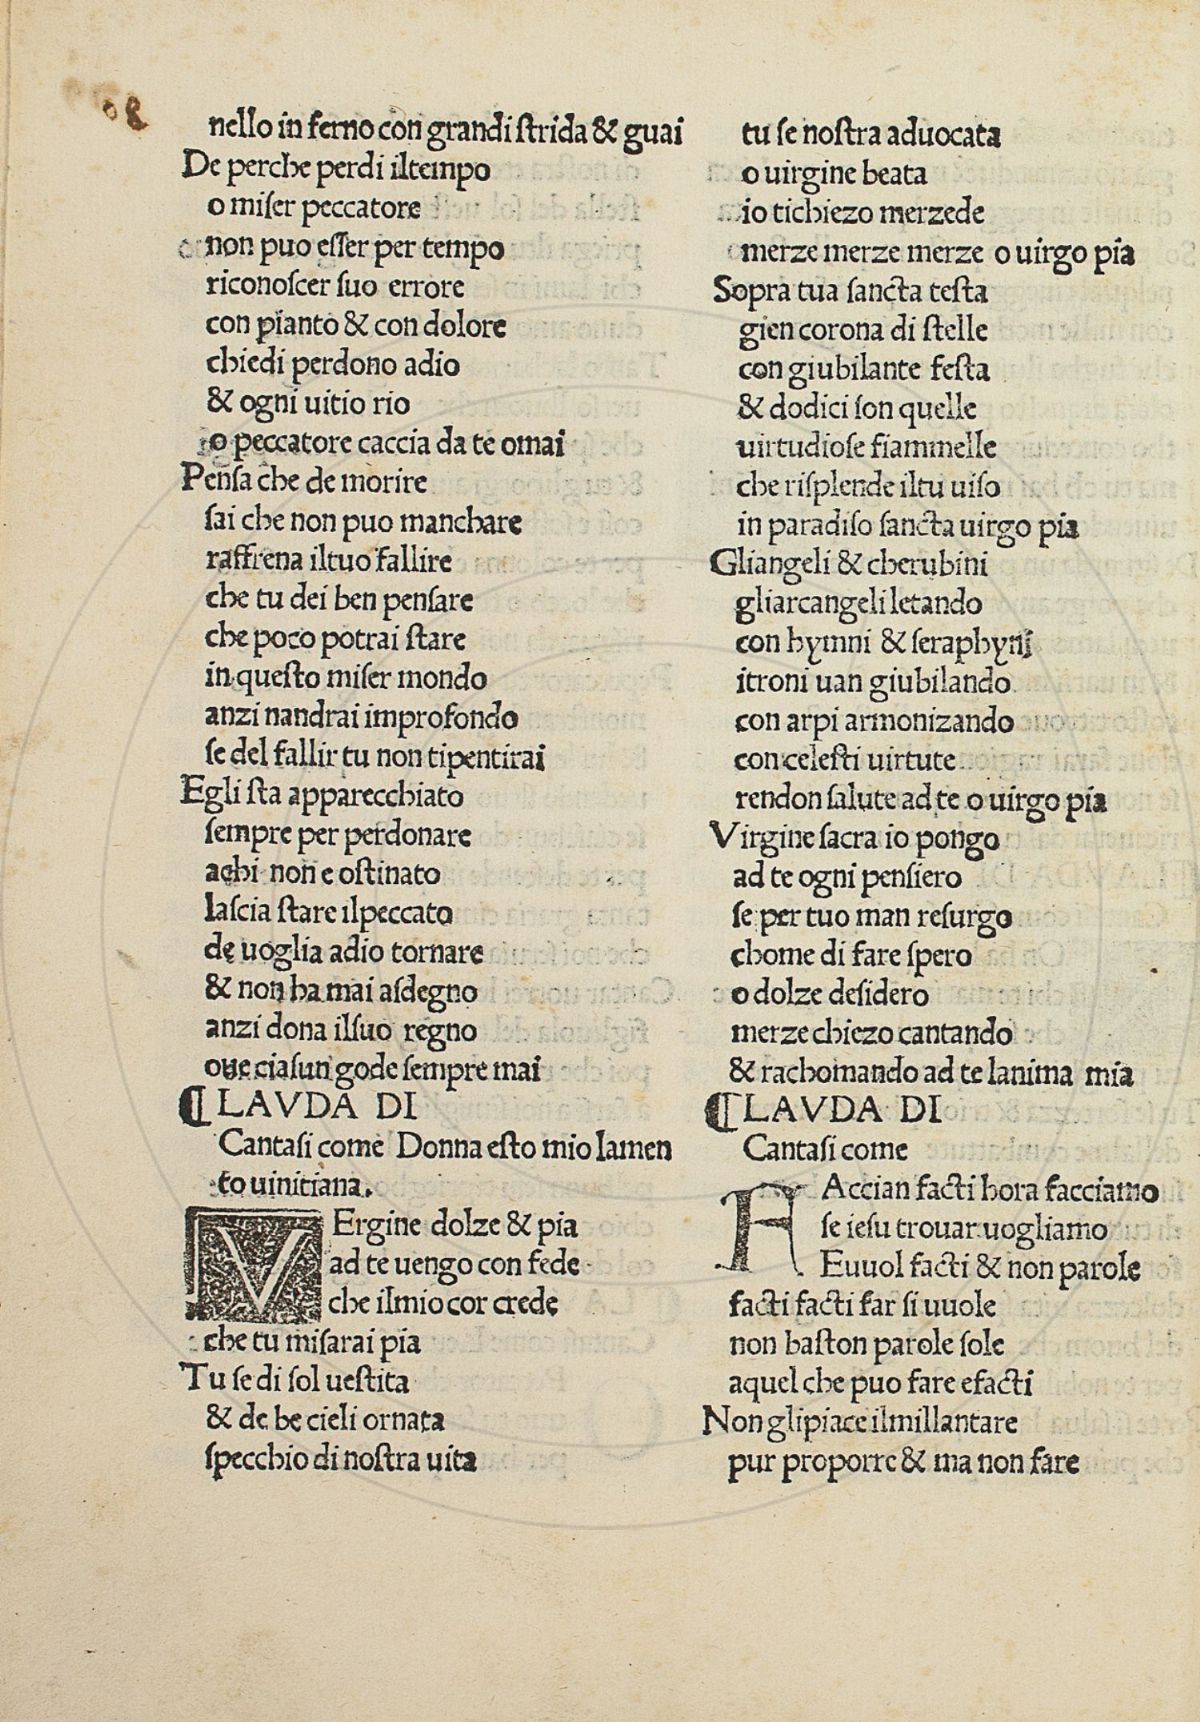 nello in ferno con grandi strida & guai
De perche perdi iltempo
o miser peccatore
non puo esser per tempo
riconoscer suo errore
con pianto & con dolore
chiedi perdono adio
& ogni uitio rio
o peccatore caccia da te omai
Pensa che de morire
sai che non puo manchare
raffrena iltuo fallire
che tu dei ben pensare
che poco potrai stare
in questo miser mondo
anzi nandrai improfondo
se del fallir tu non tipentirai
Egli sta apparecchiato
sempre per perdonare
achi non e ostinato
lascia stare ilpeccato
de uoglia adio tornare
& non ha mai asdegno
anzi dona ilsuo regno
oue ciasun gode sempre mai
¶ LAVDA DI
Cantasi come Donna esto mio lamen
to uinitiana.
VErgine dolze & pia
ad te uengo con fede
che ilmio cor crede
che tu misarai pia
Tu se di sol uestita
& de be cieli ornata
specchio di nostra uita
tu se nostra aduocata
o uirgine beata
io tichiezo merzede
merze merze merze o uirgo pia
Sopra tua sancta testa
gien corona di stelle
con giubilante festa
& dodici son quelle
uirtudiose fiammelle
che risplende iltu uiso
in paradiso sancta uirgo pia
Gliangeli & cherubini
gliarcangeli letando
con hymni & seraphyni
itroni uan giubilando
con arpi armonizando
con celesti uirtute
rendon salute ad te o uirgo pia
Virgine sacra io pongo
ad te ogni pensiero
se per tuo man resurgo
chome di fare spero
o dolze desidero
merze chiezo cantando
& rachomando ad te lanima mia
¶ LAVDA DI
Cantasi come
FAccian facti hora facciamo
se iesu trouar uogliamo
Euuol facti & non parole
facti facti far si uuole
non baston parole sole
aquel che puo fare efacti
Non glipiace ilmillantare
pur proporre & ma non fare